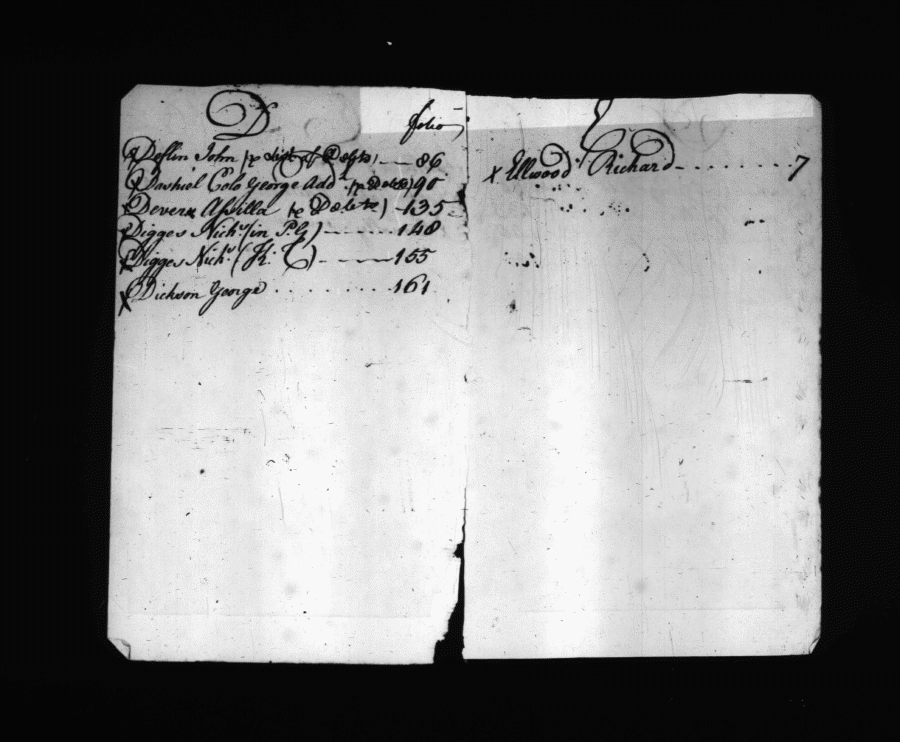 D
folio
x Deflin John (p list of Debts) — 86
x Dashiel Colo George Add. (p Debts) 90
x Deverx Assilla (p Debts) — 135
x Digges Nichs (in P. G) ------ 148
x Digges Nichs (K. C) ------ 155
x Dickson George .......... 161
E
x Ellwood Richard .......... 7